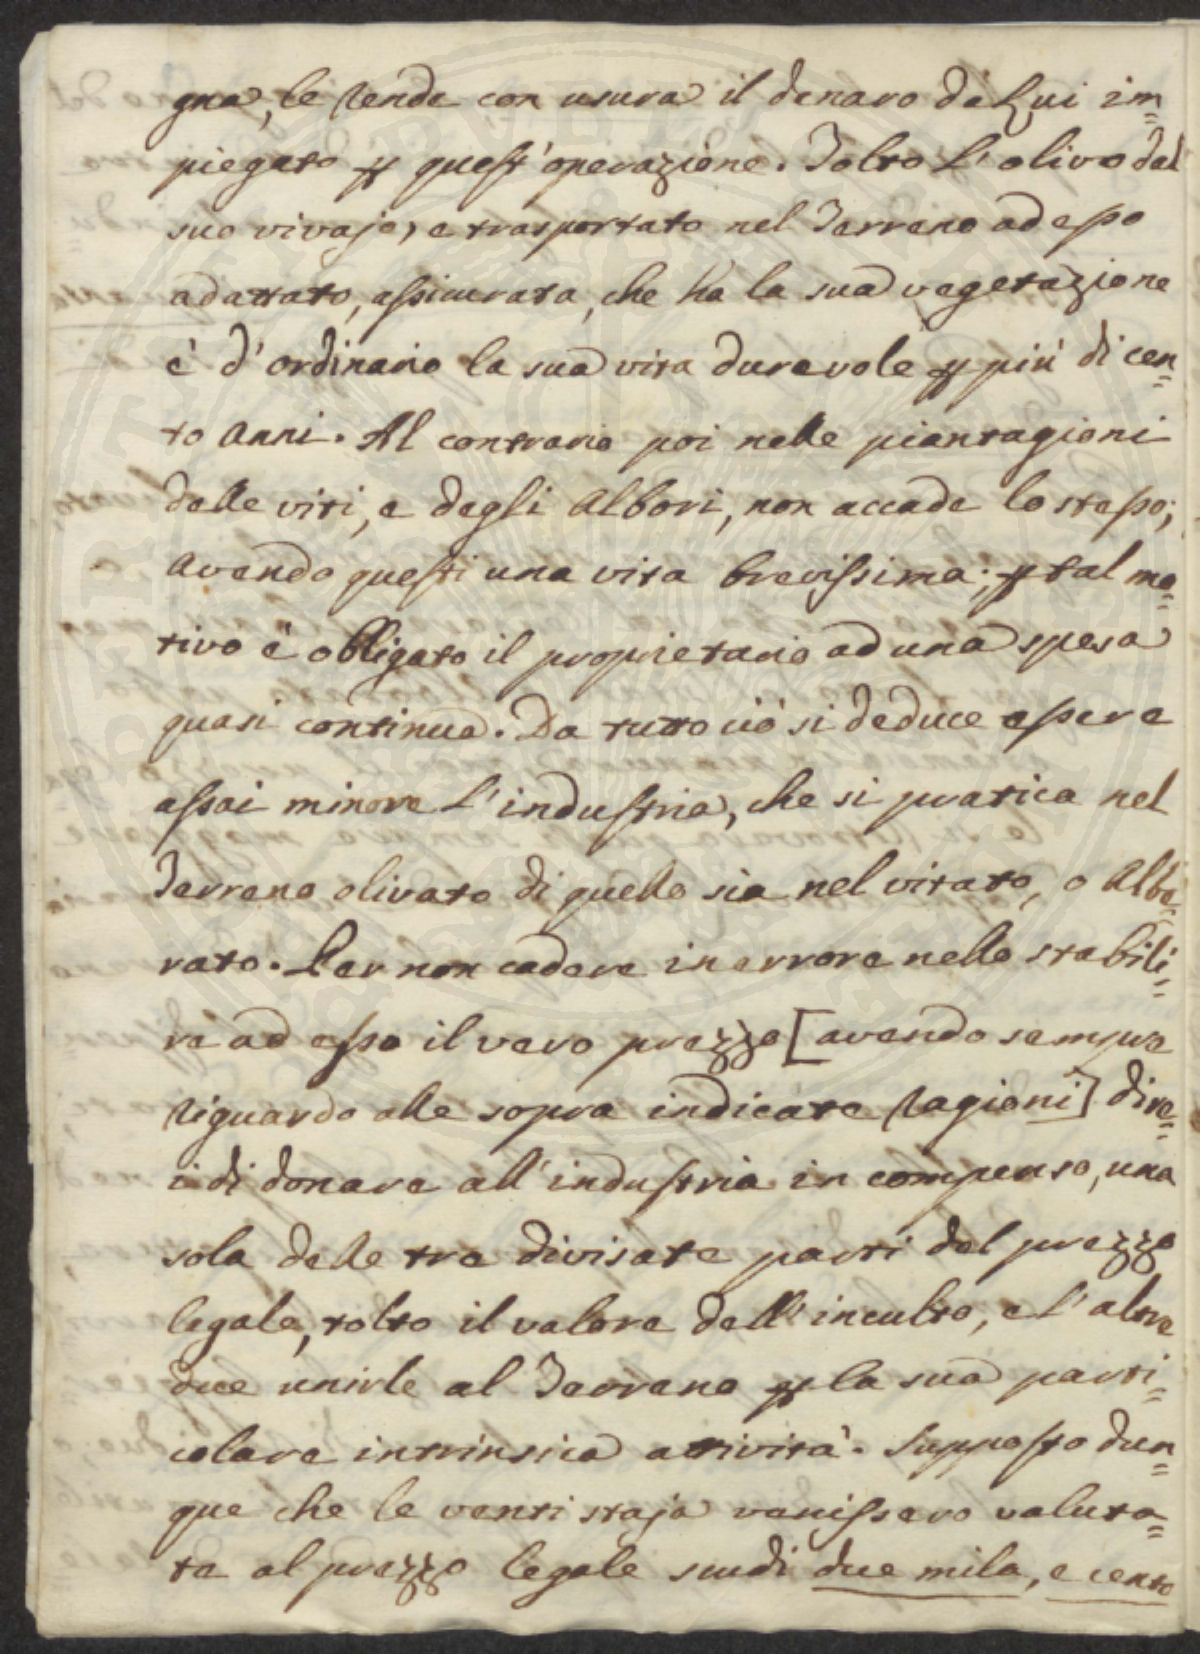 gna, le rende con usura il denaro da Lui im=
piegato p quest'operazione. Tolto l'olivo dal
suo vivajo, e trasportato nel Terreno ad esso
adattato, assicurata, che ha la sua vegetazione
è d'ordinario la sua vita durevole p più di cen=
to anni. Al contrario poi nelle piantagioni
delle viti, e degli Albori, non accade lo stesso;
avendo questi una vita brevissima; p tal mo=
tivo è obbligato il proprietario ad una spesa
quasi continua. Da tutto ciò si deduce essere
assai minore l'industria, che si pratica nel
Terreno olivato di quello sia nel vitato, o Albe=
rato. Per non cadere in errore nello stabili=
re ad esso il vero prezzo [avendo sempre
riguardo alle sopra indicate ragioni] dire=
i di donare all'industria in compenso, una
sola delle tre divisate parti del prezzo
legale, tolto il valore dell'inculto, e l'altre
due unirle al Terreno p la sua parti=
colare intrinsica attività. Supposto dun=
que che le venti staja venissero valuta=
te al prezzo legale scudi due mila, e cento